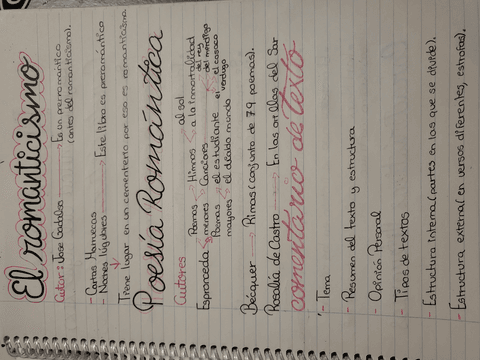 El romanticismo
Autor: Jose Cadalso → Es un prerromántico
(antes del romanticismo).
- Cartas Marruecas
- Noches lúgubres → Este libro es prerromántico
Tiene lugar en un cementerio por eso es romanticismo
Poesía Romántica
Autores
Espronceda
Poemas menores
Himnos
al sol
a la inmortalidad
Canciones
del rey
del mendigo
el cosaco
verdugo
Poemas mayores
el estudiante
el diablo mundo
Bécquer → Rimas (conjunto de 79 poemas).
Rosalía de Castro → En las orillas del Sar
comentário de texto
- Tema
- Resumen del texto y estructura
- Opinión Personal
- Tipos de textos
- Estructura interna (partes en las que se divide).
- Estructura externa (en versos diferentes, estrofas).